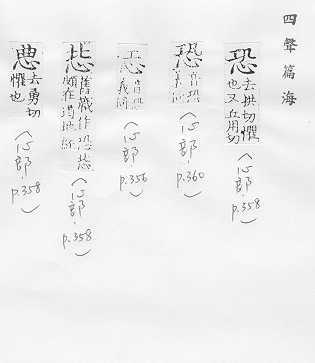 四聲篇海
恐去拱切懼也又丘用切(心部,p.358)
恐音恐義同(心部,p.360)
音恐義同(心部,p.356)
舊藏作恐(心部,p.358)
去勇切懼也(心部,p.358)